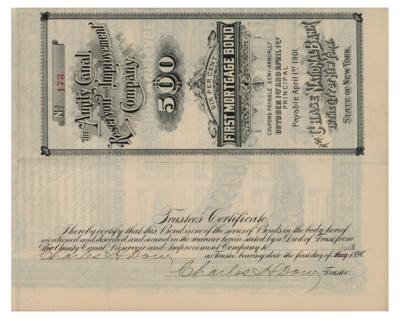 No 173
THE Amity Canal,
Reservoir and Improvement
Company.
500
SIX PER CENT
FIRST MORTGAGE BOND
COUPONS PAYABLE SEMI-ANNUALLY
OCTOBER 1ST AND APRIL 1ST
PRINCIPAL
Payable April 1st 1901.
AT THE CHASE NATIONAL BANK
IN THE CITY OF NEW YORK
STATE OF NEW YORK.
Trustee's Certificate
I hereby certify that this Bond is one of the series of Bonds in the body hereof
mentioned and described, and secured in the manner herein stated by a Deed of Trust from
The Amity Canal, Reservoir and Improvement Company to
Charles H Dow as Trustee, bearing date the first day of May 1891.
Charles H Dow Trustee.